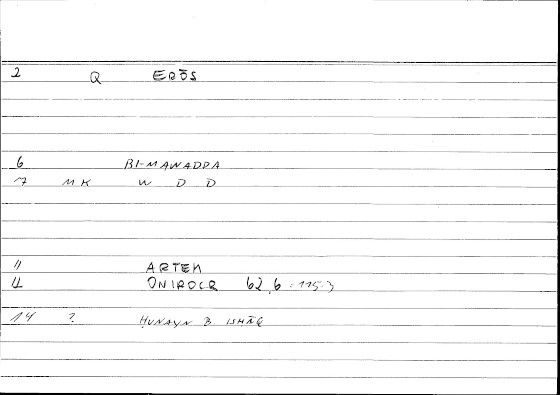 2 Q ERŌS
6 BI-MAWADDA
7 MK W D D
11 ARTEM
12 ONIROCR 62,6 : 115.3
14 ? ḤUNAYN B. ISHĀQ